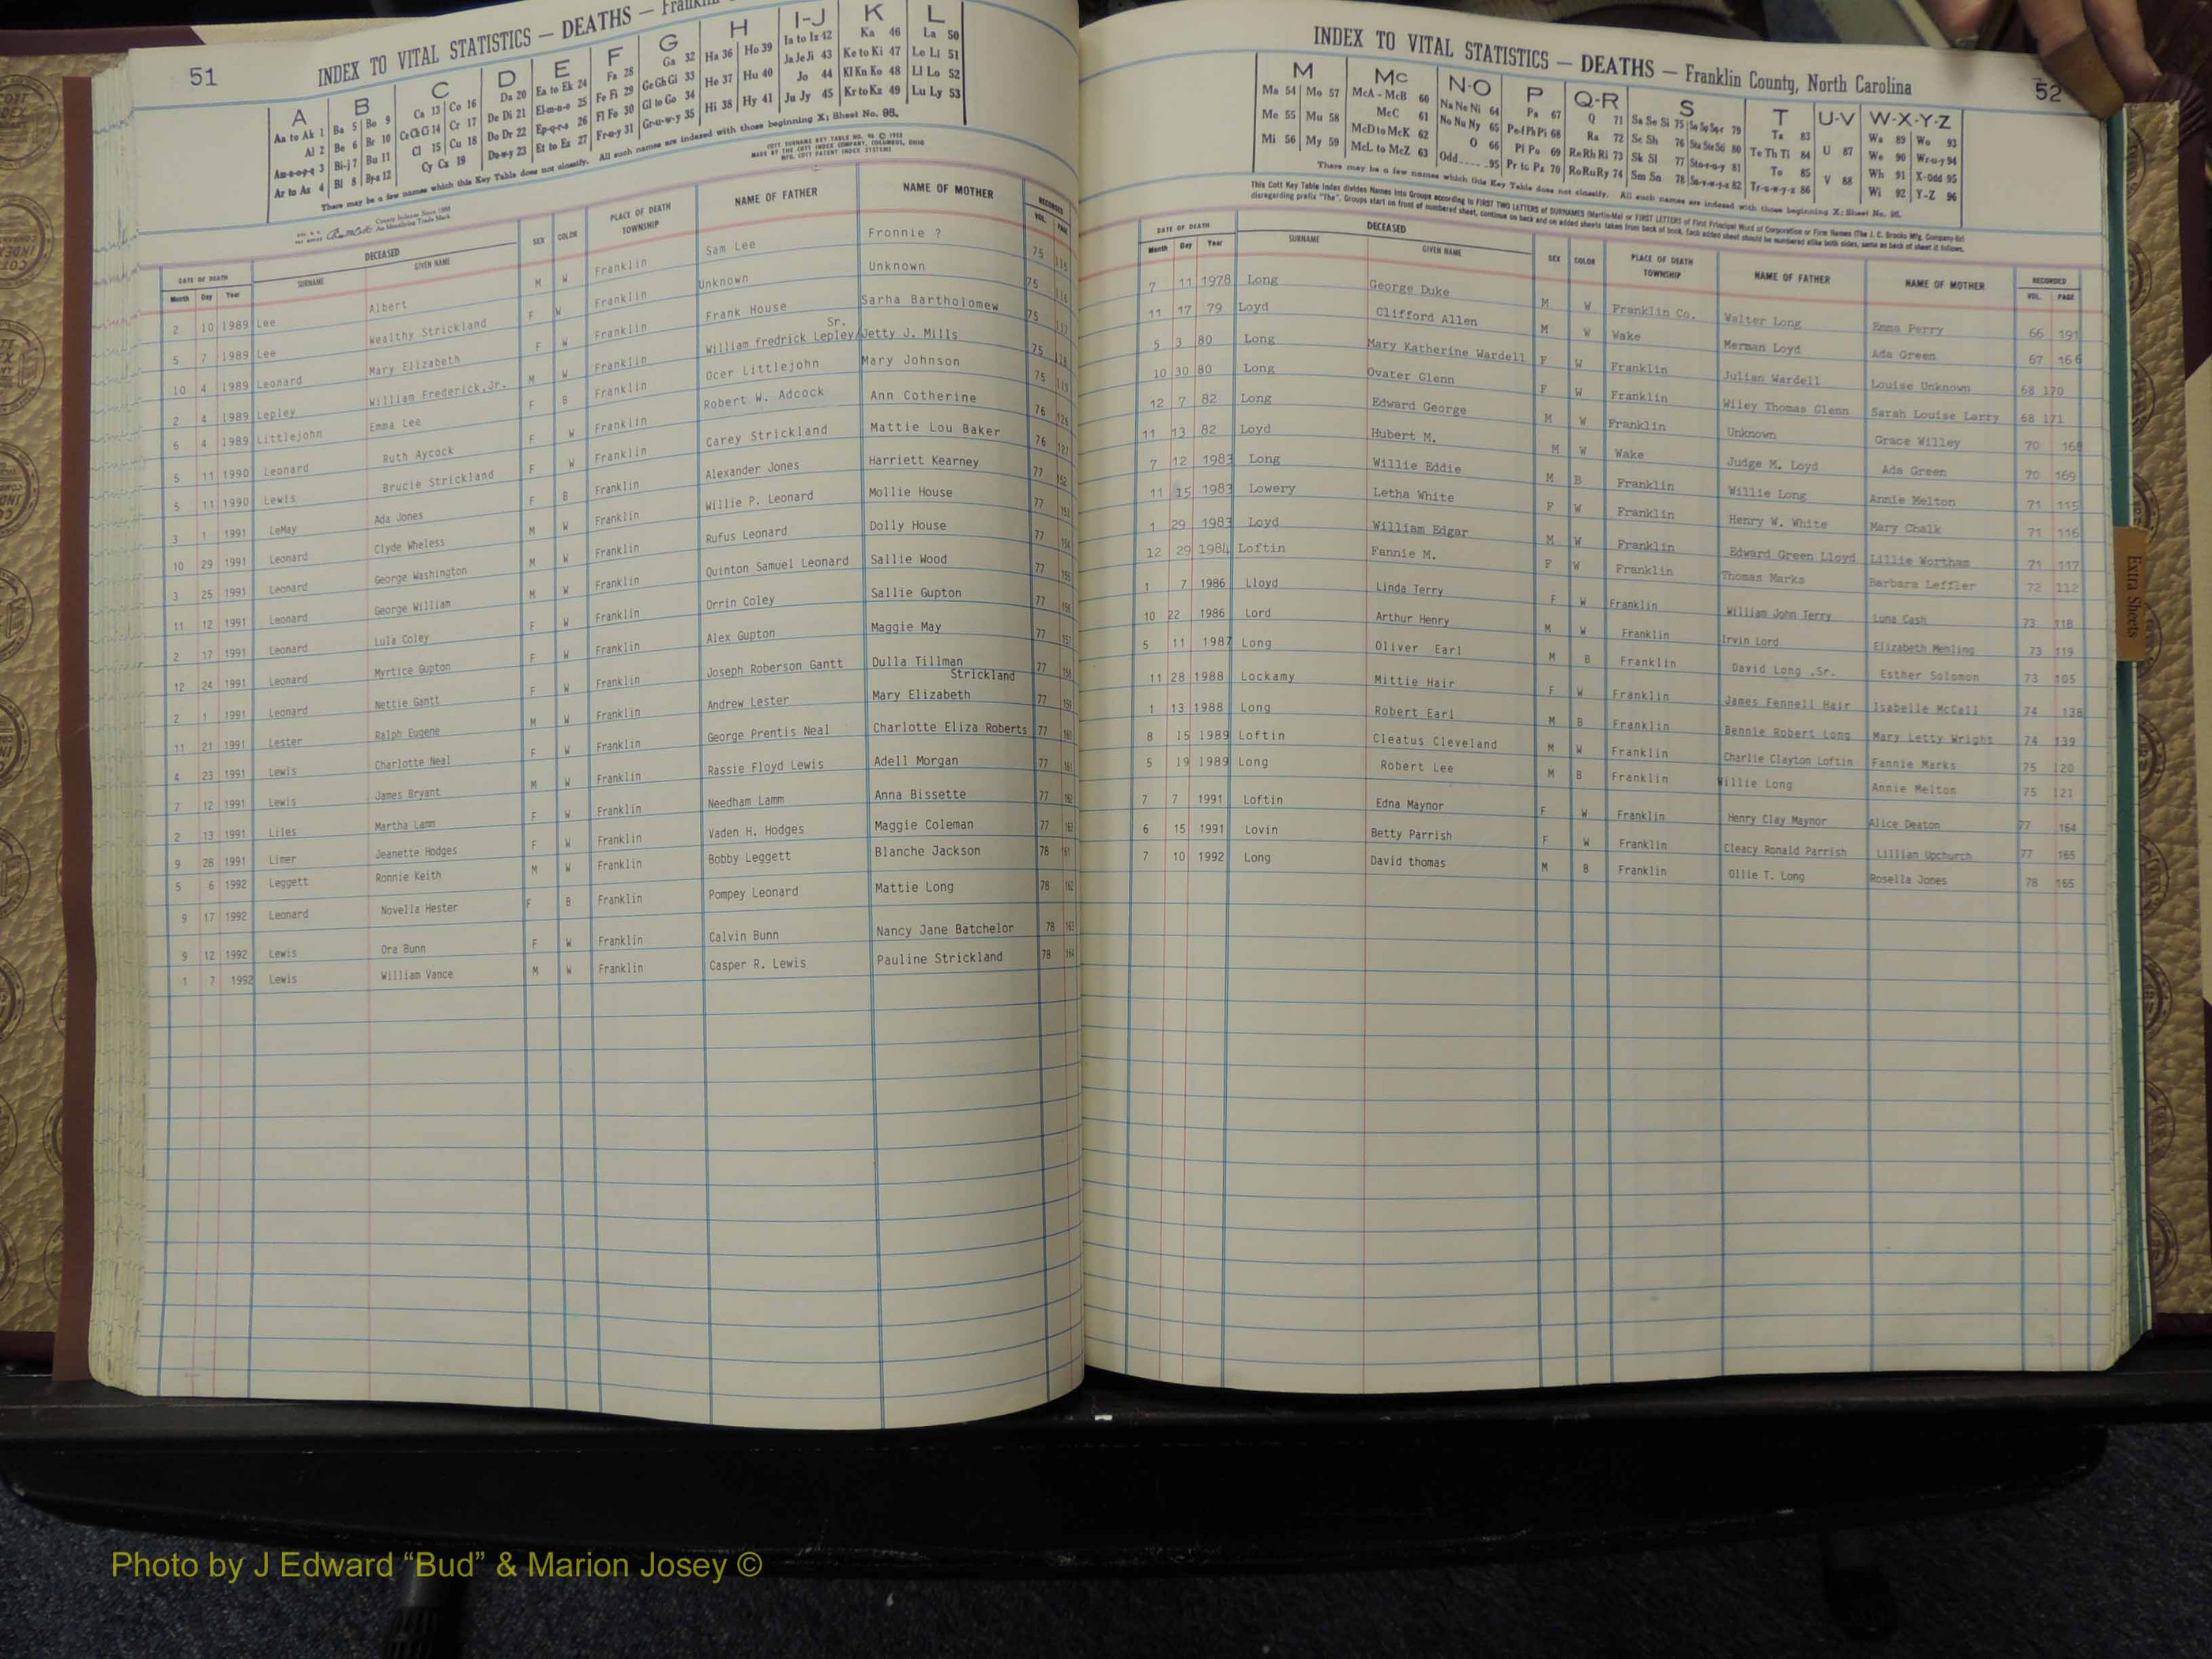 51
INDEX TO VITAL STATISTICS — DEATHS — Franklin
A B C D E F G H I-J K L
Aa to Ak 1 Ba 5 Bo 9 Ca 13 Co 16 Da 20 Ea to Ek 24 Fa 28 Ga 32 Ha 36 Ho 39 Ia to Iz 42 Ka 46 La 50
Al 2 Be 6 Br 10 Ce Ch Ci 14 Cr 17 De Di 21 El-m-n-o 25 Fe Fi 29 Ge Gh Gi 33 He 37 Hu 40 Ja Je Ji 43 Ke to Ki 47 Le Li 51
Am-n-o-p-q 3 Bi-j 7 Bu 11 Cl 15 Cu 18 Do Dr 22 Ep-q-r-s 26 Fl Fo 30 Gl to Go 34 Hi 38 Hy 41 Jo 44 Kl Kn Ko 48 Ll Lo 52
Ar to Az 4 Bl 8 By-z 12 Cy Cz 19 Du-w-y 23 Et to Ez 27 Fr-u-y 31 Gr-u-w-y 35 Ju Jy 45 Kr to Kz 49 Lu Ly 53
There may be a few names which this Key Table does not classify. All such names are indexed with those beginning X: Sheet No. 95.
COTT SURNAME KEY TABLE NO. 96 © 1952
MADE BY THE COTT INDEX COMPANY, COLUMBUS, OHIO
MFG. COTT PATENT INDEX SYSTEMS
County Indexes Since 1888
An Identifying Trade Mark
DATE OF DEATH DECEASED SEX COLOR PLACE OF DEATH TOWNSHIP NAME OF FATHER NAME OF MOTHER RECORDED
Month Day Year SURNAME GIVEN NAME VOL. PAGE
2 10 1989 Lee Albert M W Franklin Sam Lee Fronnie ? 75 115
5 7 1989 Lee Wealthy Strickland F W Franklin Unknown Unknown 75 116
10 4 1989 Leonard Mary Elizabeth F W Franklin Frank House Sarha Bartholomew 75 117
2 4 1989 Lepley William Frederick,Jr. M W Franklin William fredrick Lepley/Sr. Jetty J. Mills 75 118
6 4 1989 Littlejohn Emma Lee F B Franklin Ocer Littlejohn Mary Johnson 75 119
5 11 1990 Leonard Ruth Aycock F W Franklin Robert W. Adcock Ann Cotherine 76 126
5 11 1990 Lewis Brucie Strickland F W Franklin Carey Strickland Mattie Lou Baker 76 127
3 1 1991 LeMay Ada Jones F B Franklin Alexander Jones Harriett Kearney 77 152
10 29 1991 Leonard Clyde Wheless M W Franklin Willie P. Leonard Mollie House 77 153
3 25 1991 Leonard George Washington M W Franklin Rufus Leonard Dolly House 77 154
11 12 1991 Leonard George William M W Franklin Quinton Samuel Leonard Sallie Wood 77 155
2 17 1991 Leonard Lula Coley F W Franklin Orrin Coley Sallie Gupton 77 156
12 24 1991 Leonard Myrtice Gupton F W Franklin Alex Gupton Maggie May 77 157
2 1 1991 Leonard Nettie Gantt F W Franklin Joseph Roberson Gantt Dulla Tillman Strickland 77 158
11 21 1991 Lester Ralph Eugene M W Franklin Andrew Lester Mary Elizabeth 77 159
4 23 1991 Lewis Charlotte Neal F W Franklin George Prentis Neal Charlotte Eliza Roberts 77 160
7 12 1991 Lewis James Bryant M W Franklin Rassie Floyd Lewis Adell Morgan 77 161
2 13 1991 Liles Martha Lamm F W Franklin Needham Lamm Anna Bissette 77 162
9 28 1991 Limer Jeanette Hodges F W Franklin Vaden H. Hodges Maggie Coleman 77 163
5 6 1992 Leggett Ronnie Keith M W Franklin Bobby Leggett Blanche Jackson 78 161
9 17 1992 Leonard Novella Hester F B Franklin Pompey Leonard Mattie Long 78 162
9 12 1992 Lewis Ora Bunn F W Franklin Calvin Bunn Nancy Jane Batchelor 78 163
1 7 1992 Lewis William Vance M W Franklin Casper R. Lewis Pauline Strickland 78 164
INDEX TO VITAL STATISTICS — DEATHS — Franklin County, North Carolina
52
M Mc N-O P Q-R S T U-V W-X-Y-Z
Ma 54 Mo 57 McA - McB 60 Na Ne Ni 64 Pa 67 Q 71 Sa Se Si 75 So Sp Sq-r 79 Ta 83 U 87 Wa 89 Wo 93
Me 55 Mu 58 McC 61 No Nu Ny 65 Pe-f Ph Pi 68 Ra 72 Sc Sh 76 Sta Ste 56 80 Te Th Ti 84 V 88 We 90 Wr-u-y 94
Mi 56 My 59 McD to McK 62 O 66 Pl Po 69 Re Rh Ri 73 Sk Sl 77 Sto-r-u-y 81 To 85 Wh 91 X-Odd 95
McL to McZ 63 Odd 95 Pr to Pz 70 Ro Ru Ry 74 Sm Sn 78 Su-v-w-y-z 82 Tr-u-w-y-z 86 Wi 92 Y-Z 96
There may be a few names which this Key Table does not classify. All such names are indexed with those beginning X: Sheet No. 95.
This Cott Key Table Index divides Names into Groups according to FIRST TWO LETTERS of SURNAMES (Martin-Ma) or FIRST LETTERS of First Principal Word of Corporation or Firm Names (The J. C. Brooks Mfg. Company-Br)
disregarding prefix "The". Groups start on front of numbered sheet, continue on back and on added sheets taken from back of book. Each added sheet should be numbered alike both sides, same as back of sheet it follows.
DATE OF DEATH DECEASED SEX COLOR PLACE OF DEATH TOWNSHIP NAME OF FATHER NAME OF MOTHER RECORDED
Month Day Year SURNAME GIVEN NAME VOL. PAGE
7 11 1978 Long George Duke M W Franklin Co. Walter Long Emma Perry 66 191
11 17 79 Loyd Clifford Allen M W Wake Merman Loyd Ada Green 67 166
5 3 80 Long Mary Katherine Wardell F W Franklin Julian Wardell Louise Unknown 68 170
10 30 80 Long Ovater Glenn F W Franklin Wiley Thomas Glenn Sarah Louise Larry 68 171
12 7 82 Long Edward George M W Franklin Unknown Grace Willey 70 168
11 13 82 Loyd Hubert M. M W Wake Judge M. Loyd Ada Green 70 169
7 12 1983 Long Willie Eddie M B Franklin Willie Long Annie Melton 71 115
11 15 1983 Lowery Letha White F W Franklin Henry W. White Mary Chalk 71 116
1 29 1983 Loyd William Edgar M W Franklin Edward Green Lloyd Lillie Wortham 71 117
12 29 1984 Loftin Fannie M. F W Franklin Thomas Marks Barbara Leffler 72 112
1 7 1986 Lloyd Linda Terry F W Franklin William John Terry Luna Cash 73 118
10 22 1986 Lord Arthur Henry M W Franklin Irvin Lord Elizabeth Menling 73 119
5 11 1987 Long Oliver Earl M B Franklin David Long ,Sr. Esther Solomon 73 105
11 28 1988 Lockamy Mittie Hair F W Franklin James Fennell Hair Isabelle McCall 74 138
1 13 1988 Long Robert Earl M B Franklin Bennie Robert Long Mary Letty Wright 74 139
8 15 1989 Loftin Cleatus Cleveland M W Franklin Charlie Clayton Loftin Fannie Marks 75 120
5 19 1989 Long Robert Lee M B Franklin Willie Long Annie Melton 75 121
7 7 1991 Loftin Edna Maynor F W Franklin Henry Clay Maynor Alice Deaton 77 164
6 15 1991 Lovin Betty Parrish F W Franklin Cleacy Ronald Parrish Lillian Upchurch 77 165
7 10 1992 Long David thomas M B Franklin Ollie T. Long Rosella Jones 78 165
Extra Sheets
Photo by J Edward “Bud” & Marion Josey ©